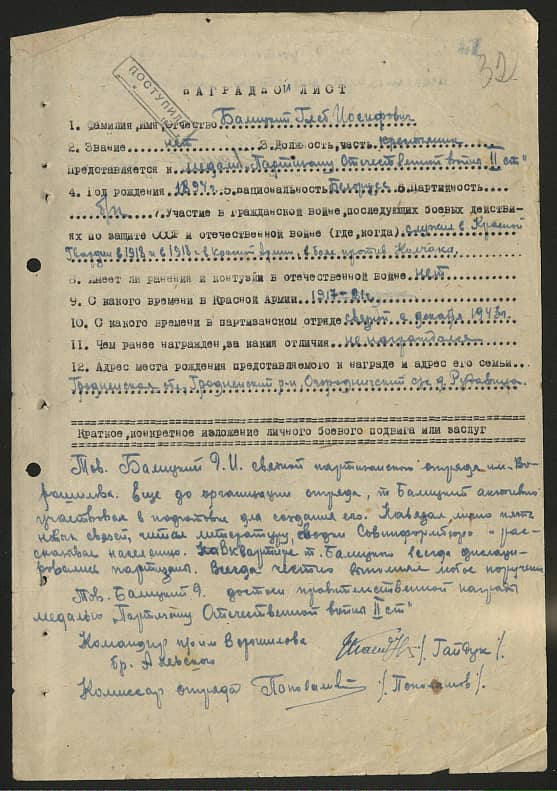 32
ПОСТУПИЛ
НАГРАДНОЙ ЛИСТ
1. Фамилия, имя, отчество Балицкий Глеб Иосифович
2. Звание нет 3. Должность, часть крестьянин
Представляется к медали "Партизану Отечественной войны II ст"
4. Год рождения 1897г. 5. Национальность Белорусс 6. Партийность
б/п 7. Участие в Гражданской войне, последующих боевых действи-
ях по защите СССР и отечественной войне (где, когда) служил в Красной
Гвардии в 1918 и в 1918 г в Красной армии, в боях против Колчака.
8. Имеет ли ранения и контузии в отечественной войне нет
9. С какого времени в Красной Армии 1917-21г.
10. С какого времени в партизанском отряде связной с декабря 1943г.
11. Чем ранее награжден, за какия отличия не награждался
12. Адрес места рождения представляемого к награде и адрес его семьи
Гродненская об. Гродненский р-н, Огородничский с/с д.
Краткое, конкретное изложение личного боевого подвига или заслуг
Тов. Балицкий И. связной партизанского отряда им. Во-
рошилова. Еще до организации отряда, т Балицкий активно
участвовал в подготовке для создания его. пять
связей, читал литературу, сводки Совинформбюро и рас-
населению. На квартире т. Балицкого всегда
партизаны. Всегда честно выполнял любое поручение
Тов. Балицкий достоин правительственной награды
медалью "Партизану Отечественной войны II ст"
Командир им Ворошилова
бр. А Невского /. Гайдук /.
Комиссар отряда